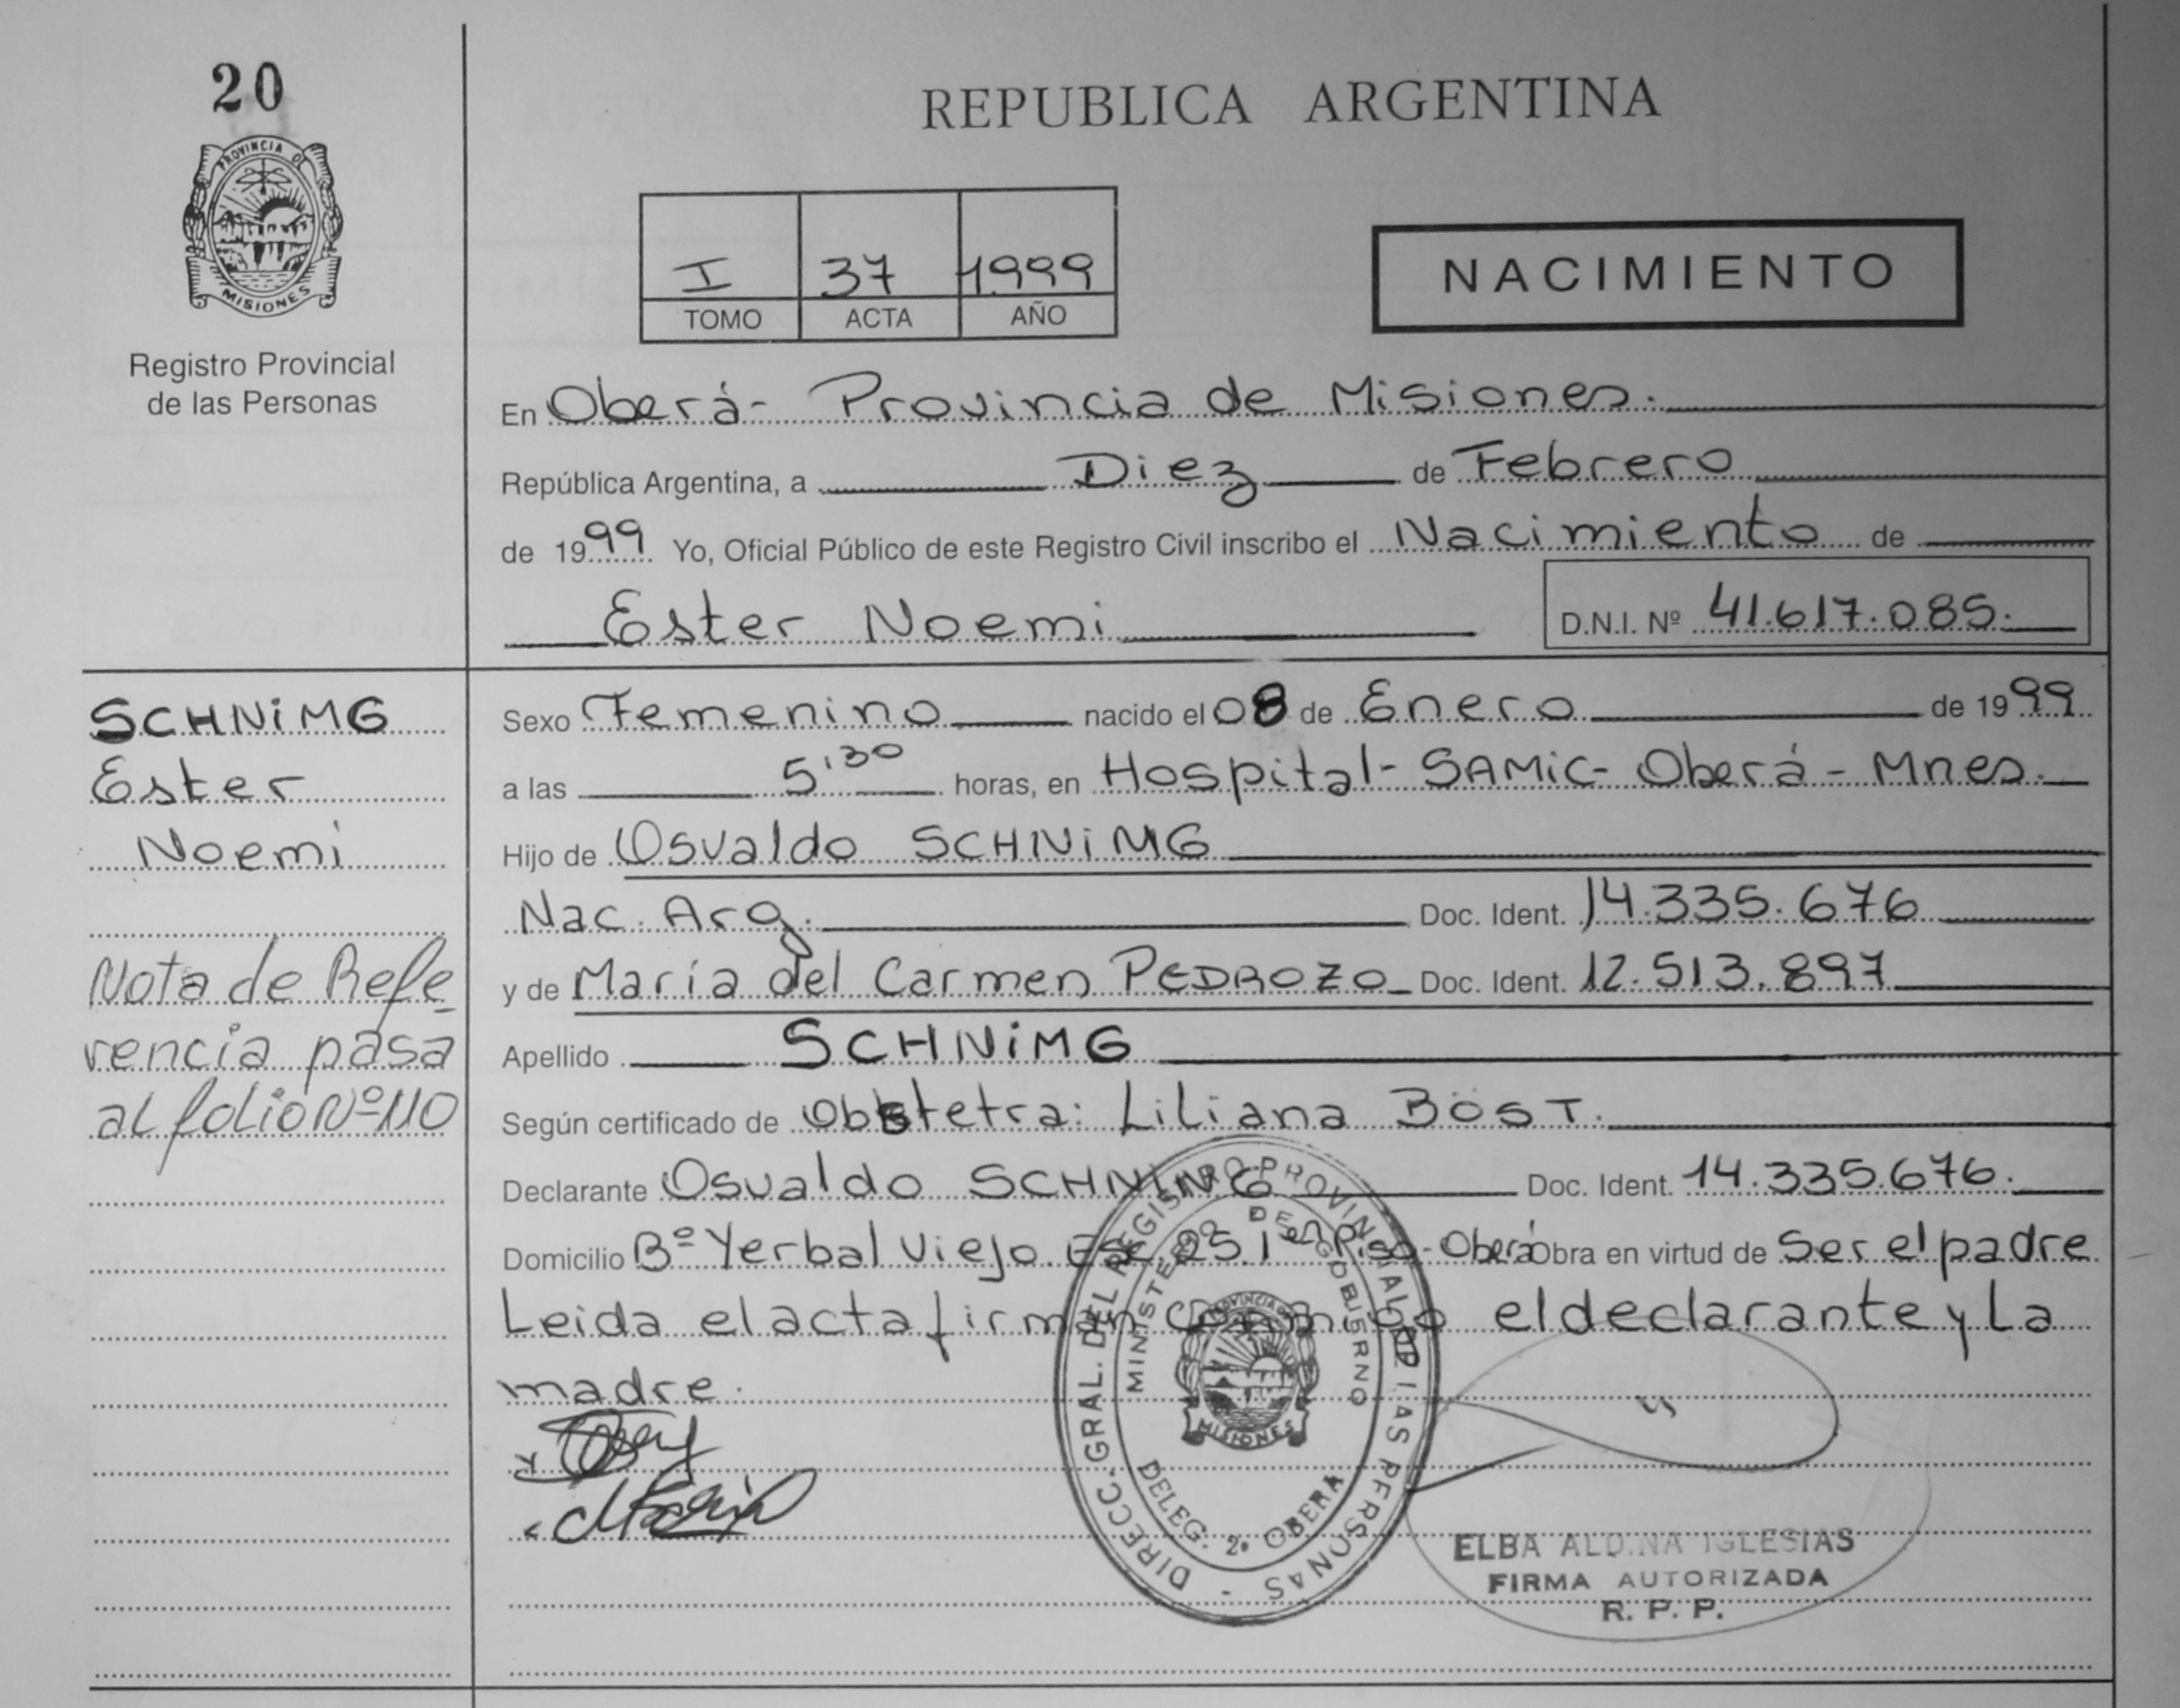 20
PROVINCIA DE
MISIONES
Registro Provincial
de las Personas
REPUBLICA ARGENTINA
I 37 1999
TOMO ACTA AÑO
NACIMIENTO
En Oberá- Provincia de Misiones.
República Argentina, a Diez de Febrero
de 1999 Yo, Oficial Público de este Registro Civil inscribo el Nacimiento de
Ester Noemi D.N.I. Nº 41.617.085.
SCHNiMG
Ester
Noemi
Nota de Refe-
rencia pasa
al folio Nº 110
Sexo Femenino nacido el 08 de Enero de 1999
a las 5'30 horas, en Hospital- SAMiC- Oberá - Mnes.
Hijo de Osvaldo SCHNiMG
Nac. Arg. Doc. Ident. 14.335.676
y de María del Carmen PEDROZO Doc. Ident. 12.513.897
Apellido SCHNiMG
Según certificado de Obstetra: Liliana BÖST.
Declarante Osvaldo SCHNiMG Doc. Ident. 14.335.676.
Domicilio Bº Yerbal Viejo. Esc 25. 1er Piso- Oberá Obra en virtud de Ser el padre
Leida el acta firman conmigo el declarante y La
madre.
DIRECC. GRAL. DEL REGISTRO PROVINCIAL DE LAS PERSONAS -
MINISTERIO DE GOBIERNO
PROVINCIA DE
MISIONES
DELEG. 2º OBERA
ELBA ALDINA IGLESIAS
FIRMA AUTORIZADA
R. P. P.